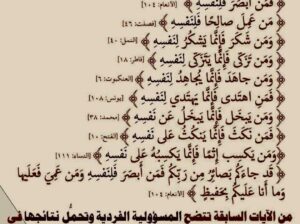 ﴿ فَمَنْ أَبْصَرَ فَلِنَفْسِهِ ﴾ [الأنعام: ١٠٤]
﴿ مَنْ عَمِلَ صَالِحًا فَلِنَفْسِهِ ﴾ [فصلت: ٤٦]
﴿ وَمَن شَكَرَ فَإِنَّمَا يَشْكُرُ لِنَفْسِهِ ﴾ [النمل: ٤٠]
﴿ وَمَن تَزَكَّى فَإِنَّمَا يَتَزَكَّى لِنَفْسِهِ ﴾ [فاطر: ١٨]
﴿ وَمَن جَاهَدَ فَإِنَّمَا يُجَاهِدُ لِنَفْسِهِ ﴾ [العنكبوت: ٦]
﴿ فَمَنِ اهْتَدَى فَإِنَّمَا يَهْتَدِي لِنَفْسِهِ ﴾ [يونس: ١٠٨]
﴿ وَمَن يَبْخَلْ فَإِنَّمَا يَبْخَلُ عَن نَّفْسِهِ ﴾ [محمد: ٣٨]
﴿ فَمَن نَّكَثَ فَإِنَّمَا يَنكُثُ عَلَى نَفْسِهِ ﴾ [الفتح: ١٠]
﴿ وَمَن يَكْسِبْ إِثْمًا فَإِنَّمَا يَكْسِبُهُ عَلَى نَفْسِهِ ﴾ [النساء: ١١١]
﴿ قَدْ جَاءَكُم بَصَائِرُ مِن رَّبِّكُمْ فَمَنْ أَبْصَرَ فَلِنَفْسِهِ وَمَنْ عَمِيَ فَعَلَيْهَا
وَمَا أَنَا عَلَيْكُم بِحَفِيظٍ ﴾ [الأنعام: ١٠٤]
من الآيات السابقة تتضح المسؤولية الفردية وتحمل نتائجها في